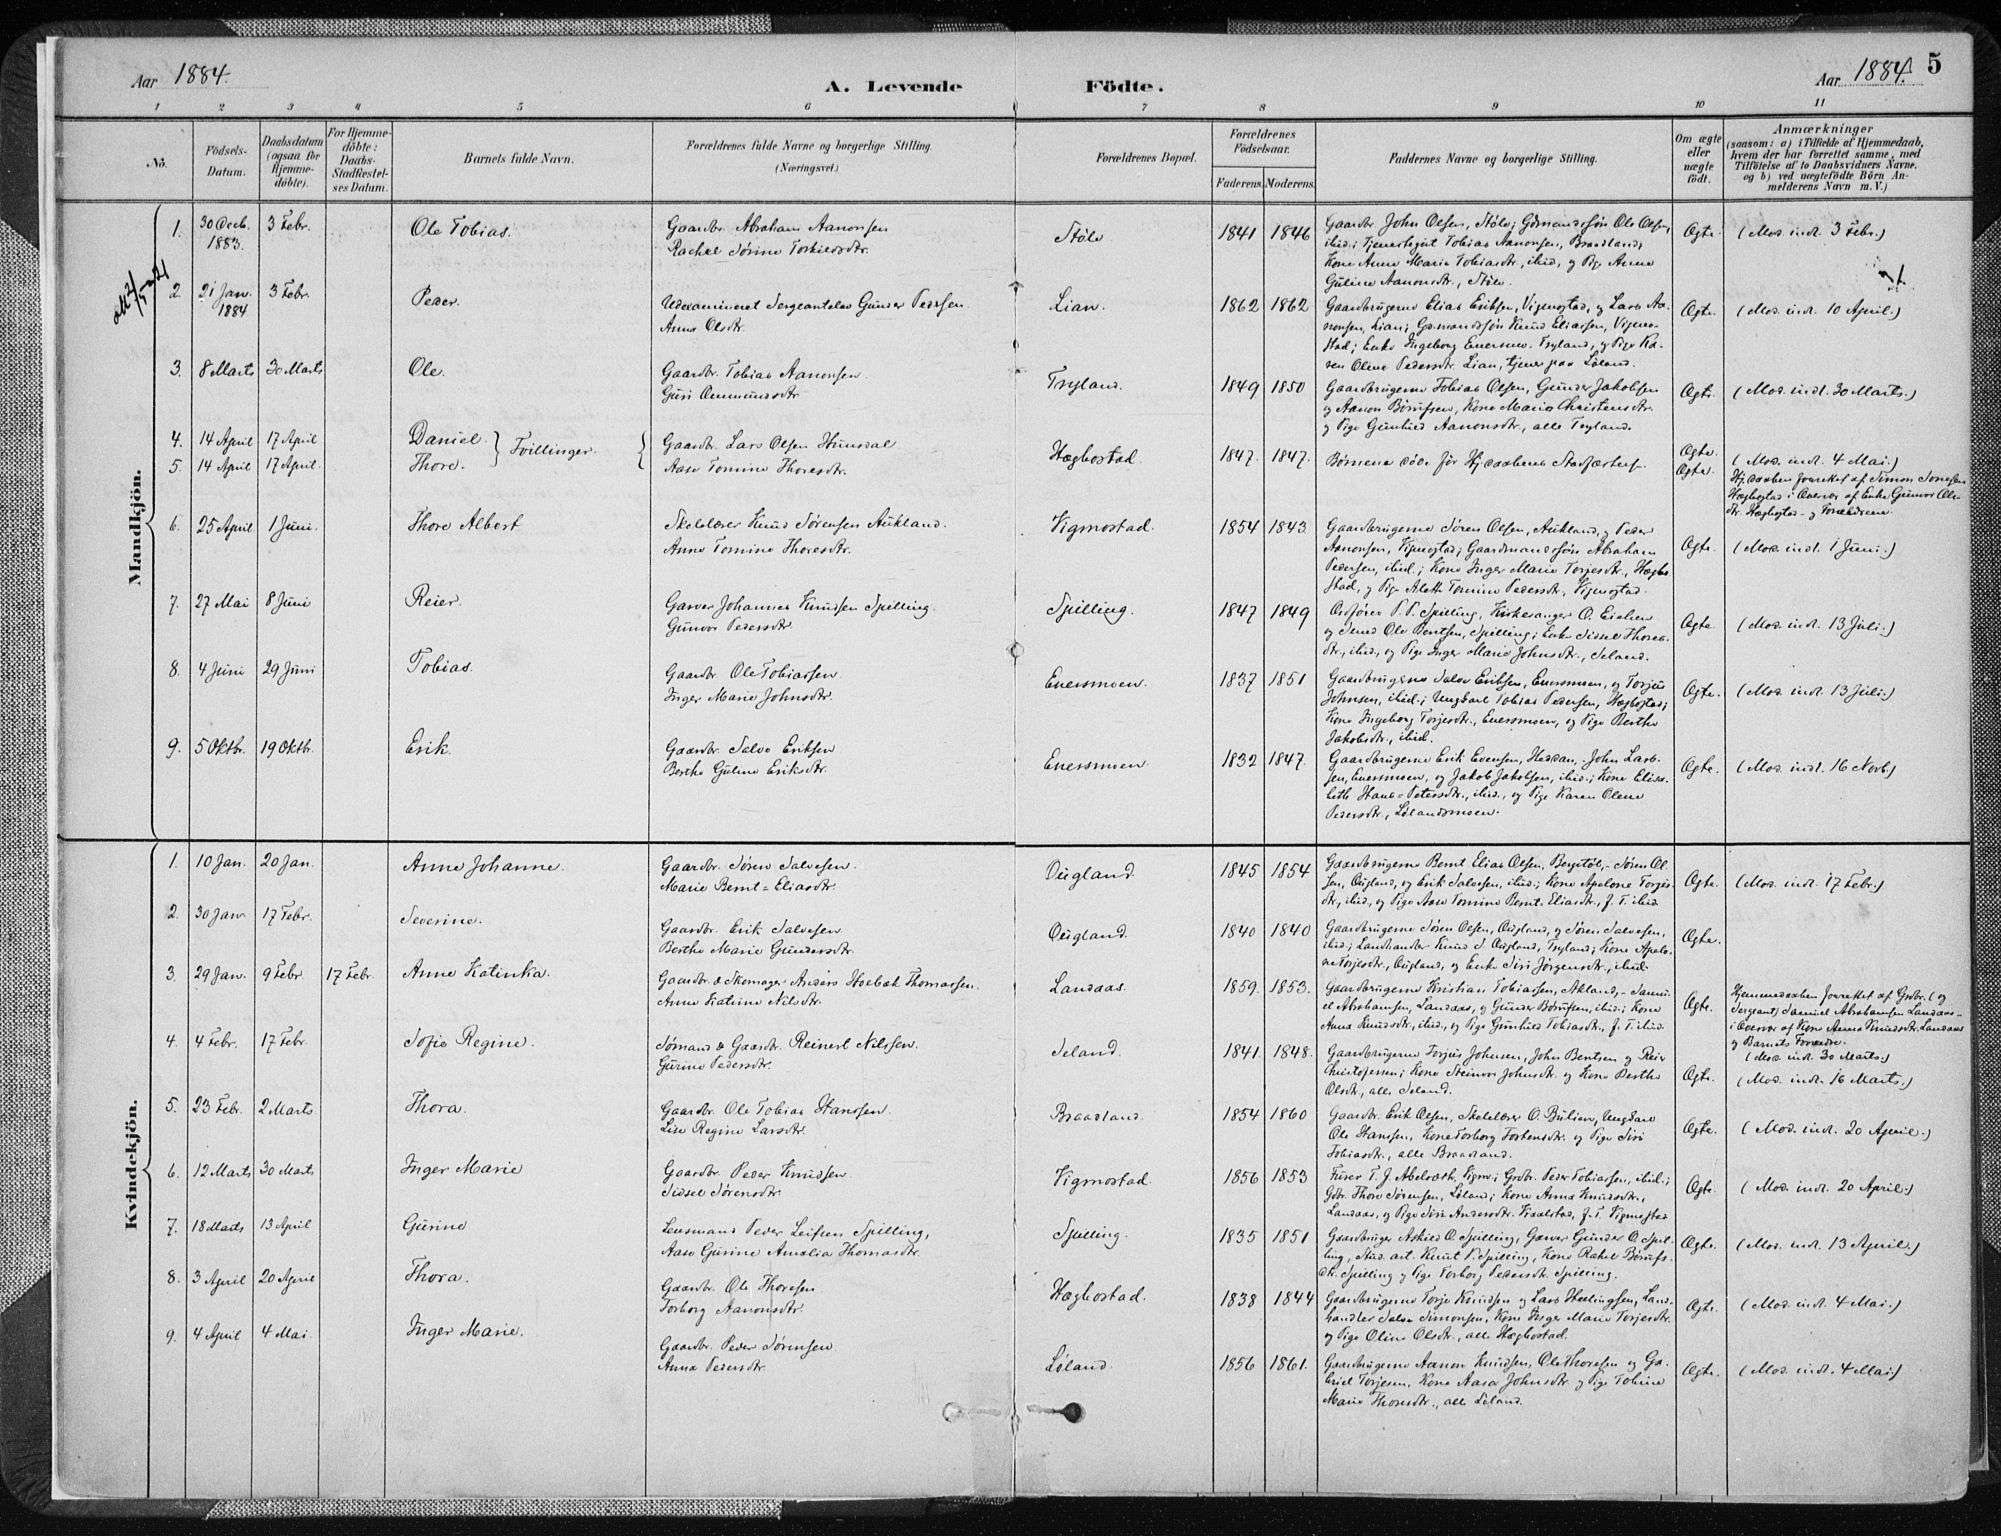 Aar 1884.
A. Levende Födte.
Aar 1884. 5
1 2 3 4 5 6 7 8 9 10 11
No.
Födsels-Datum.
Daabsdatum (ogsaa for Hjemme-döbte).
For Hjemme-döbte: Daabs-Stadfæstel-ses Datum.
Barnets fulde Navn.
Forældrenes fulde Navne og borgerlige Stilling. (Næringsvei.)
Forældrenes Bopæl.
Forældrenes Födselsaar.
Faderens. Moderens.
Faddernes Navne og borgerlige Stilling.
Om ægte eller uægte födt.
Anmærkninger
(saasom: a) i Tilfælde af Hjemmedaab,
hvem der har forrettet samme, med
Tilföielse af to Daabsvidners Navne,
og b) ved uægtefödte Börn An-
melderens Navn m. V.)
Mandkjön.
1. 30 Decb. 1883. 3 Febr. Ole Tobias. Gaardbr. Abraham Aanonsen
Rachel Sørine Torkildsdtr. Støle 1841 1846
Gaardbr. John Olsen, Støle; Gdmandssøn Ole Olsen,
ibid.; Tjenestegut Tobias Aanonsen, Braadland;
Kone Anne Marie Tobiasdtr., ibid., og Pige Anne
Guline Aanonsdtr., Støle.
Ægte. (Mod. ind. 3 Febr.)
2. 21 Jan. 1884 3 Febr. Peder. Udexamineret Sergeantelev Gunder Pedersen
Anna Olsdtr. Lian. 1862 1862
Gaardbrugerne Elias Eriksen, Vigmostad, og Lars Aa-
nonsen, Lian; Gdmandssøn Knud Eliassen, Vigmo-
stad; Enke Ingeborg Evensen. Tryland, og Pige Ka-
ren Oline Pedersdtr. Lian, tjener paa Løland.
Ægte. (Mod. ind. 10 April.)
3. 8 Marts 30 Marts Ole. Gaardbr. Tobias Aanonsen.
Guri Aanmundsdtr. Tryland. 1849 1850
Gaardbrugerne Tobias Olsen, Gunder Jakobsen
og Aanon Børufsen, Kone Marie Christensdtr.
og Pige Gunhild Aanonsdtr., alle Tryland.
Ægte. (Mod. indl. 30 Marts.)
4. 14 April 17 April Daniel.
5. 14 April 17 April. Thore. } Tvillinger. { Gaardbr. Lars Olsen Hunsdal
Aase Tomine Thoresdtr. Hægbostad. 1847. 1847.
Børnene døde før Hj.daabens Stadfæstelse.
Ægte. Ægte. (Mod. ind. 4 Mai.)
Hj.daaben forrettet af Simon Tønnesen
Hægbostad i Overvær af Enke Gunvor Ols-
dtr. Hægbostad og Forældrene.
6. 25 April 1 Juni. Thore Albert Skolelærer Knud Sørensen Aukland.
Anne Tomine Thoresdtr. Vigmostad. 1854 1843
Gaardbrugerne Søren Olsen, Aukland, og Peder
Aanonsen, Vigmostad; Gaardmandssøn Abraham
Pedersen, ibid.; Kone Inger Marie Torjesdtr., Hægbo-
stad, og Pige Aleth Tomine Pedersdtr., Vigmostad.
Ægte. (Mod. indl. 1 Juni.)
7. 27 Mai 8 Juni Reier. Garver Johannes Knudsen Spilling.
Gunvor Pedersdtr. Spilling. 1847 1849
Ordfører P. P. Spilling, Kirkesanger O. Eieland
og Svend Ole Berntsen, Spilling; Enke Sidsel Thores-
dtr., ibid., og Pige Inger Marie Johnsdtr., Seland.
Ægte. (Mod. ind. 13 Juli.)
8. 4 Juni 29 Juni Tobias. Gaardbr. Ole Tobiassen.
Inger Marie Johnsdtr. Enersmoen. 1837 1851
Gaardbrugerne Salve Eriksen, Enersmoen, og Torjus
Johnsen, ibid.; Ungkarl Tobias Pedersen, Hægbostad;
Kone Ingeborg Torjesdtr., Enersmoen, og Pige Berthe
Jakobsdtr., ibid.
Ægte. (Mod. ind. 13 Juli.)
9. 5 Oktbr. 19 Oktbr. Erik. Gaardbr. Salve Eriksen
Berthe Guline Eriksdtr. Enersmoen 1832 1847.
Gaardbrugerne Erik Evensen, Heddan, John Lars-
sen, Enersmoen, og Jakob Jakobsen, ibid.; Kone Elisa-
beth Hans-Petersdtr., ibid., og Pige Karen Olene
Pedersdtr., Lølandsmoen.
Ægte. (Mod. indl. 16 Novb.)
Kvindekjön.
1. 10 Jan. 20 Jan. Anne Johanne. Gaardbr. Søren Salvesen.
Marie Bernt-Eliasdtr. Ougland. 1845 1854
Gaardbrugerne Bernt Elias Olsen, Bergstøl, Søren Ol-
sen, Ougland, og Erik Salvesen, ibid.; Kone Apelone Torjes-
dtr., ibid., og Pige Aase Tomine Bernt-Eliasdtr., f. T. ibid.
Ægte. (Mod. ind. 17 Febr.)
2. 30 Jan. 17 Febr. Severine. Gaardbr. Erik Salvesen
Berthe Marie Gundersdtr. Ougland. 1840 1840
Gaardbrugerne Søren Olsen, Ougland, og Søren Salvesen,
ibid.; Landhandler Knud S. Ougland, Tryland; Kone Apelo-
ne Torjesdtr., Ougland, og Enke Siri Jørgensdtr., ibid.
Ægte.
3. 29 Jan. 9 Febr. 17 Febr. Anne Katinka. Gaardbr. & Skomager Anders Hoebak Thomassen.
Anne Katrine Nilsdtr. Landaas. 1859. 1853.
Gaardbrugerne Kristian Tobiassen, Akland, Samu-
el Abrahamsen, Landaas, og Gunder Børufsen, ibid.; Kone
Anna Knudsdtr., ibid., og Pige Gunhild Tobiasdtr., f. T. ibid.
Ægte. Hjemmedaaben forrettet af Grdbr. (og
Sergeant) Samuel Abrahamsen Landaas
i Overvær af Kone Anna Knudsdtr. Landaas
og Barnets Forældre.
(Mod. ind. 30 Marts.)
4. 4 Febr. 17 Febr. Sofie Regine. Sømand & Gaardbr. Reinert Nilssen.
Gurine Pedersdtr. Seland. 1841. 1848.
Gaardbrugerne Torjus Johnsen, John Bentsen og Reier
Christophersen; Kone Steinvor Johnsdtr. og Kone Berthe
Olsdtr., alle Seland.
Ægte. (Mod. ind. 16 Marts.)
5. 23 Febr. 2 Marts Thora. Gaardbr. Ole Tobias Hanssen.
Lise Regine Larsdtr. Braadland. 1854 1860
Gaardbr. Erik Olsen, Skolelærer O. Bulien, Ungkarl
Ole Hanssen, Kone Torborg Torstensdtr. og Pige Siri
Tobiasdtr., alle Braadland.
Ægte. (Mod. ind. 20 April.)
6. 12 Marts 30 Marts Inger Marie Gaardbr. Peder Knudsen
Sidsel Sørensdtr. Vigmostad. 1856 1853
T. J. Abelseth, Vigm.; Grdbr. Peder Tobiassen, ibid.;
Gdbr. Thore Sørensen, Løland; Kone Anna Knudsdtr.,
Landaas, og Pige Siri Andersdtr. f. T. Vigmostad
Ægte. (Mod. ind. 20 April.)
7. 18 Marts 13 April Gurine Lensmand Peder Leifsen Spilling,
Aase Gurine Amalia Thomasdtr. Spilling. 1835 1851
Gaardbruger Askild O. Spilling, Garver Gunder O. Spil-
ling, Stud. art. Knut P. Spilling, Kone Rakel Børufs-
dtr. Spilling og Pige Torborg Pedersdtr. Spilling.
Ægte. (Mod. ind. 13 April.)
8. 3 April 20 April Thora. Gaardbr. Ole Thoresen
Torborg Aanonsdtr. Hægbostad. 1838 1844
Gaardbrugerne Torje Knudsen og Lars Hellingsen, Land-
handler Salve Simonsen, Kone Inger Marie Torjesdtr.
og Pige Oline Olsdtr., alle Hægbostad.
Ægte. (Mod. ind. 4 Mai.)
9. 4 April 4 Mai. Inger Marie. Gaardbr. Peder Sørensen
Anna Pedersdtr. Løland. 1856 1861.
Gaardbrugerne Aanon Knudsen, Ole Thoresen og Ga-
briel Torjesen, Kone Aasa Johnsdtr. og Pige Tobine
Marie Thoresdtr., alle Løland.
Ægte. (Mod. ind. 4 Mai)